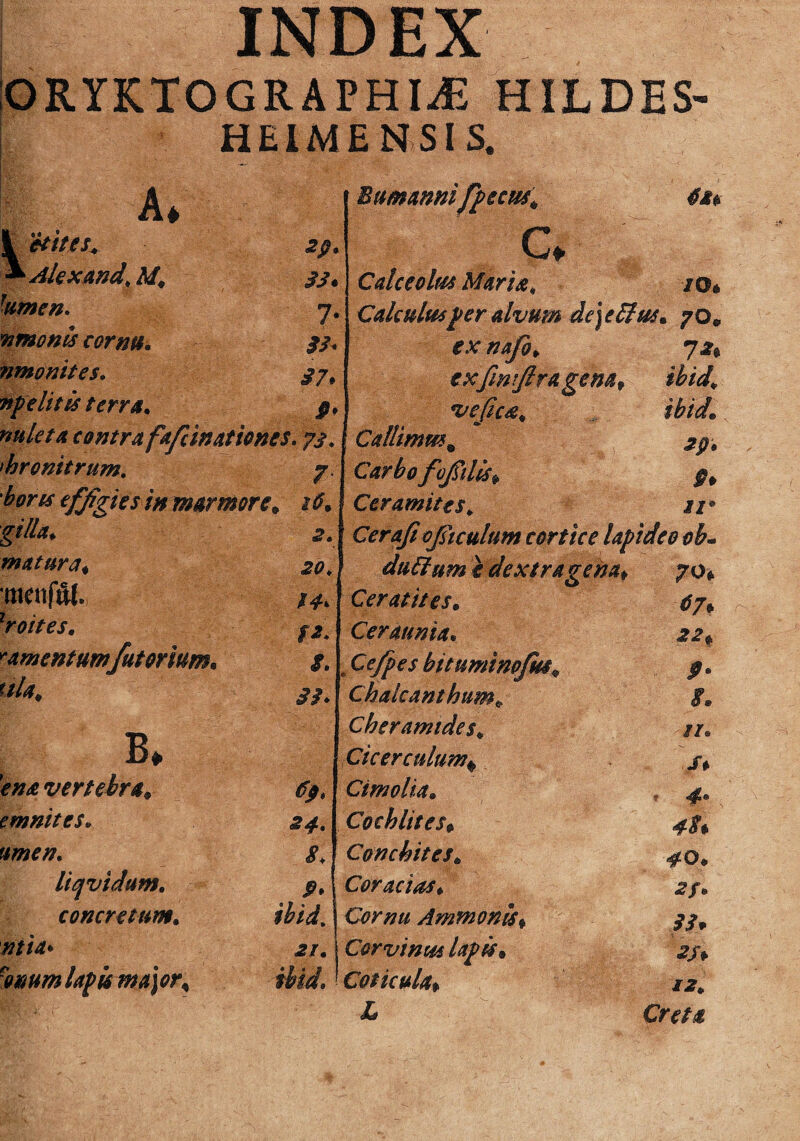 INDEX
ORYKTOGRAPHIÆ HILDES-
HEIMENSIS.
A.
ëtites. 29.
Alexand. M. 33.
umen. 7.
mmonis cornu. 33.
mmonites. 37.
mpelitis terra. 9.
muleta contra fascinationes. 73.
phronitrum. 7
boris effigies in marmore. 16.
gilla. 2.
matura. 20.
menfål. 14.
roites. 52.
ramentum sutorium. 8.
ula. 33.
B.
enæ vertebra. 69.
emnites. 24.
umen. 8.
liqvidum. 9.
concretum. ibid.
ntia. 21.
onum lapis major. ibid.
Bumanni specus. 62.
C.
Calceolus Mariæ. 10.
Calculus per alvum dejectus. 70.
ex naso. 72.
ex sinistra gena. ibid.
vesicæ. ibid.
Callimus. 29.
Carbo fossilis. 9.
Ceramites. 11.
Cerasi ossiculum cortice lapideo ob-
ductum è dextra gena. 70.
Ceratites. 67.
Ceraunia. 22.
Cespes bituminosus. 9.
Chalcanthum. 8.
Cheramides. 11.
Cicerculum. 5.
Cimolia. 4.
Cochlites. 48.
Conchites. 40.
Coracias. 25.
Cornu Ammonis. 33.
Corvinus lapis. 25.
Coticula. 12.
L Creta